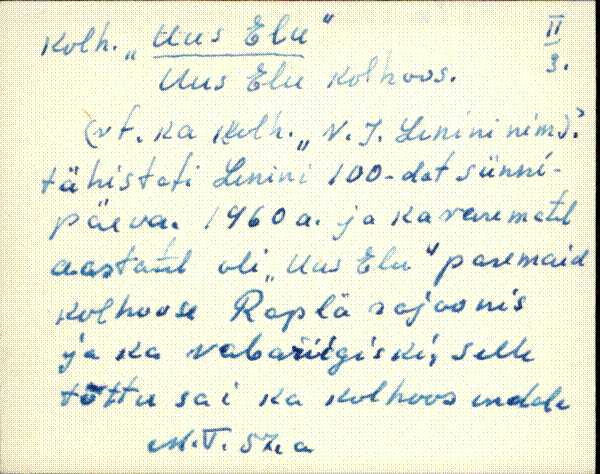 Kolh. „Uus Elu"
II
3.
Uus Elu kolhoos.
(vt. ka kolh. „V. I. Lenini nim.):
tähistati Lenini 100-dat sünni-
päeva. 1960 a. ja ka varematel
aastatel oli „Uus Elu" paremaid
kolhoose Rapla rajoonis
ja ka vabariigiski, selle
tõttu sai ka kolhoos endale